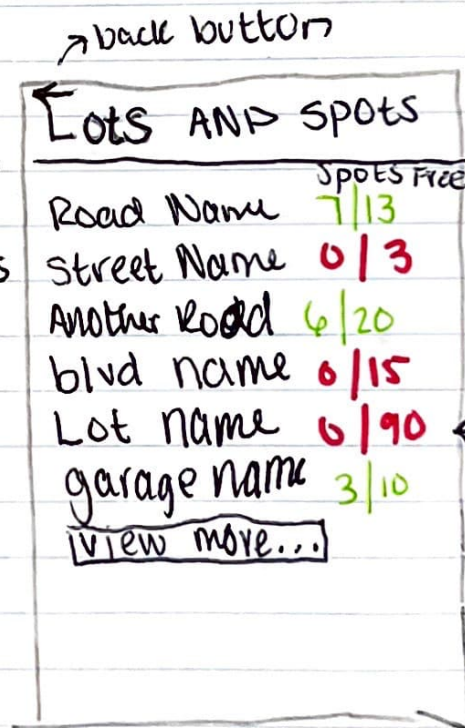 back button
Lots AND spots
Spots Free
Road Name 7/13
s Street Name 0/3
Another Road 6/20
blvd name 0/15
Lot name 0/90
garage name 3/10
View more...